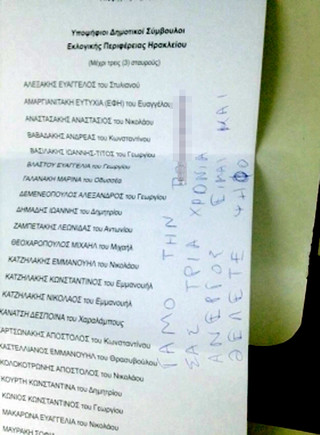 Υποψήφιοι Δημοτικοί Σύμβουλοι
Εκλογικής Περιφέρειας Ηρακλείου
(Μέχρι τρεις (3) σταυρούς)
ΑΛΕΞΑΚΗΣ ΕΥΑΓΓΕΛΟΣ του Στυλιανού
ΑΜΑΡΓΙΑΝΙΤΑΚΗ ΕΥΤΥΧΙΑ (ΕΦΗ) του Ευαγγέλου
ΑΝΑΣΤΑΣΑΚΗΣ ΑΝΑΣΤΑΣΙΟΣ του Νικολάου
ΒΑΒΑΔΑΚΗΣ ΑΝΔΡΕΑΣ του Κωνσταντίνου
ΒΑΣΙΛΑΚΗΣ ΙΩΑΝΝΗΣ-ΤΙΤΟΣ του Γεωργίου
ΒΛΑΣΤΟΥ ΕΥΑΓΓΕΛΙΑ του Γεωργίου
ΓΑΛΑΝΑΚΗ ΜΑΡΙΝΑ του Οδυσσέα
ΔΕΜΕΝΕΟΠΟΥΛΟΣ ΑΛΕΞΑΝΔΡΟΣ του Γεωργίου
ΔΗΜΑΔΗΣ ΙΩΑΝΝΗΣ του Δημητρίου
ΖΑΜΠΕΤΑΚΗΣ ΛΕΩΝΙΔΑΣ του Αντωνίου
ΘΕΟΧΑΡΟΠΟΥΛΟΣ ΜΙΧΑΗΛ του Μιχαήλ
ΚΑΤΖΗΛΑΚΗΣ ΕΜΜΑΝΟΥΗΛ του Νικολάου
ΚΑΤΖΗΛΑΚΗΣ ΚΩΝΣΤΑΝΤΙΝΟΣ του Εμμανουήλ
ΚΑΤΖΗΛΑΚΗΣ ΝΙΚΟΛΑΟΣ του Εμμανουήλ
ΚΑΝΑΤΣΗ ΔΕΣΠΟΙΝΑ του Χαραλάμπους
ΑΡΤΣΩΝΑΚΗΣ ΑΠΟΣΤΟΛΟΣ του Κωνσταντίνου
ΚΑΣΤΕΛΛΙΑΝΟΣ ΕΜΜΑΝΟΥΗΛ του Θρασυβούλου
ΚΟΛΟΚΟΤΡΩΝΗΣ ΑΠΟΣΤΟΛΟΣ του Νικολάου
ΚΟΥΡΤΗ ΚΩΝΣΤΑΝΤΙΝΑ του Δημητρίου
ΚΩΝΙΟΣ ΚΩΝΣΤΑΝΤΙΝΟΣ του Γεωργίου
ΜΑΚΑΡΩΝΑ ΕΥΑΓΓΕΛΙΑ του Νικολάου
ΜΑΥΡΑΚΗ
ΓΑΜΟ ΤΗΝ
ΣΑΣ ΤΡΙΑ ΧΡΟΝΙΑ
ΑΝΕΡΓΟΣ ΕΙΜΑΙ ΚΑΙ
ΘΕΛΕΤΕ ΨΗΦΟ